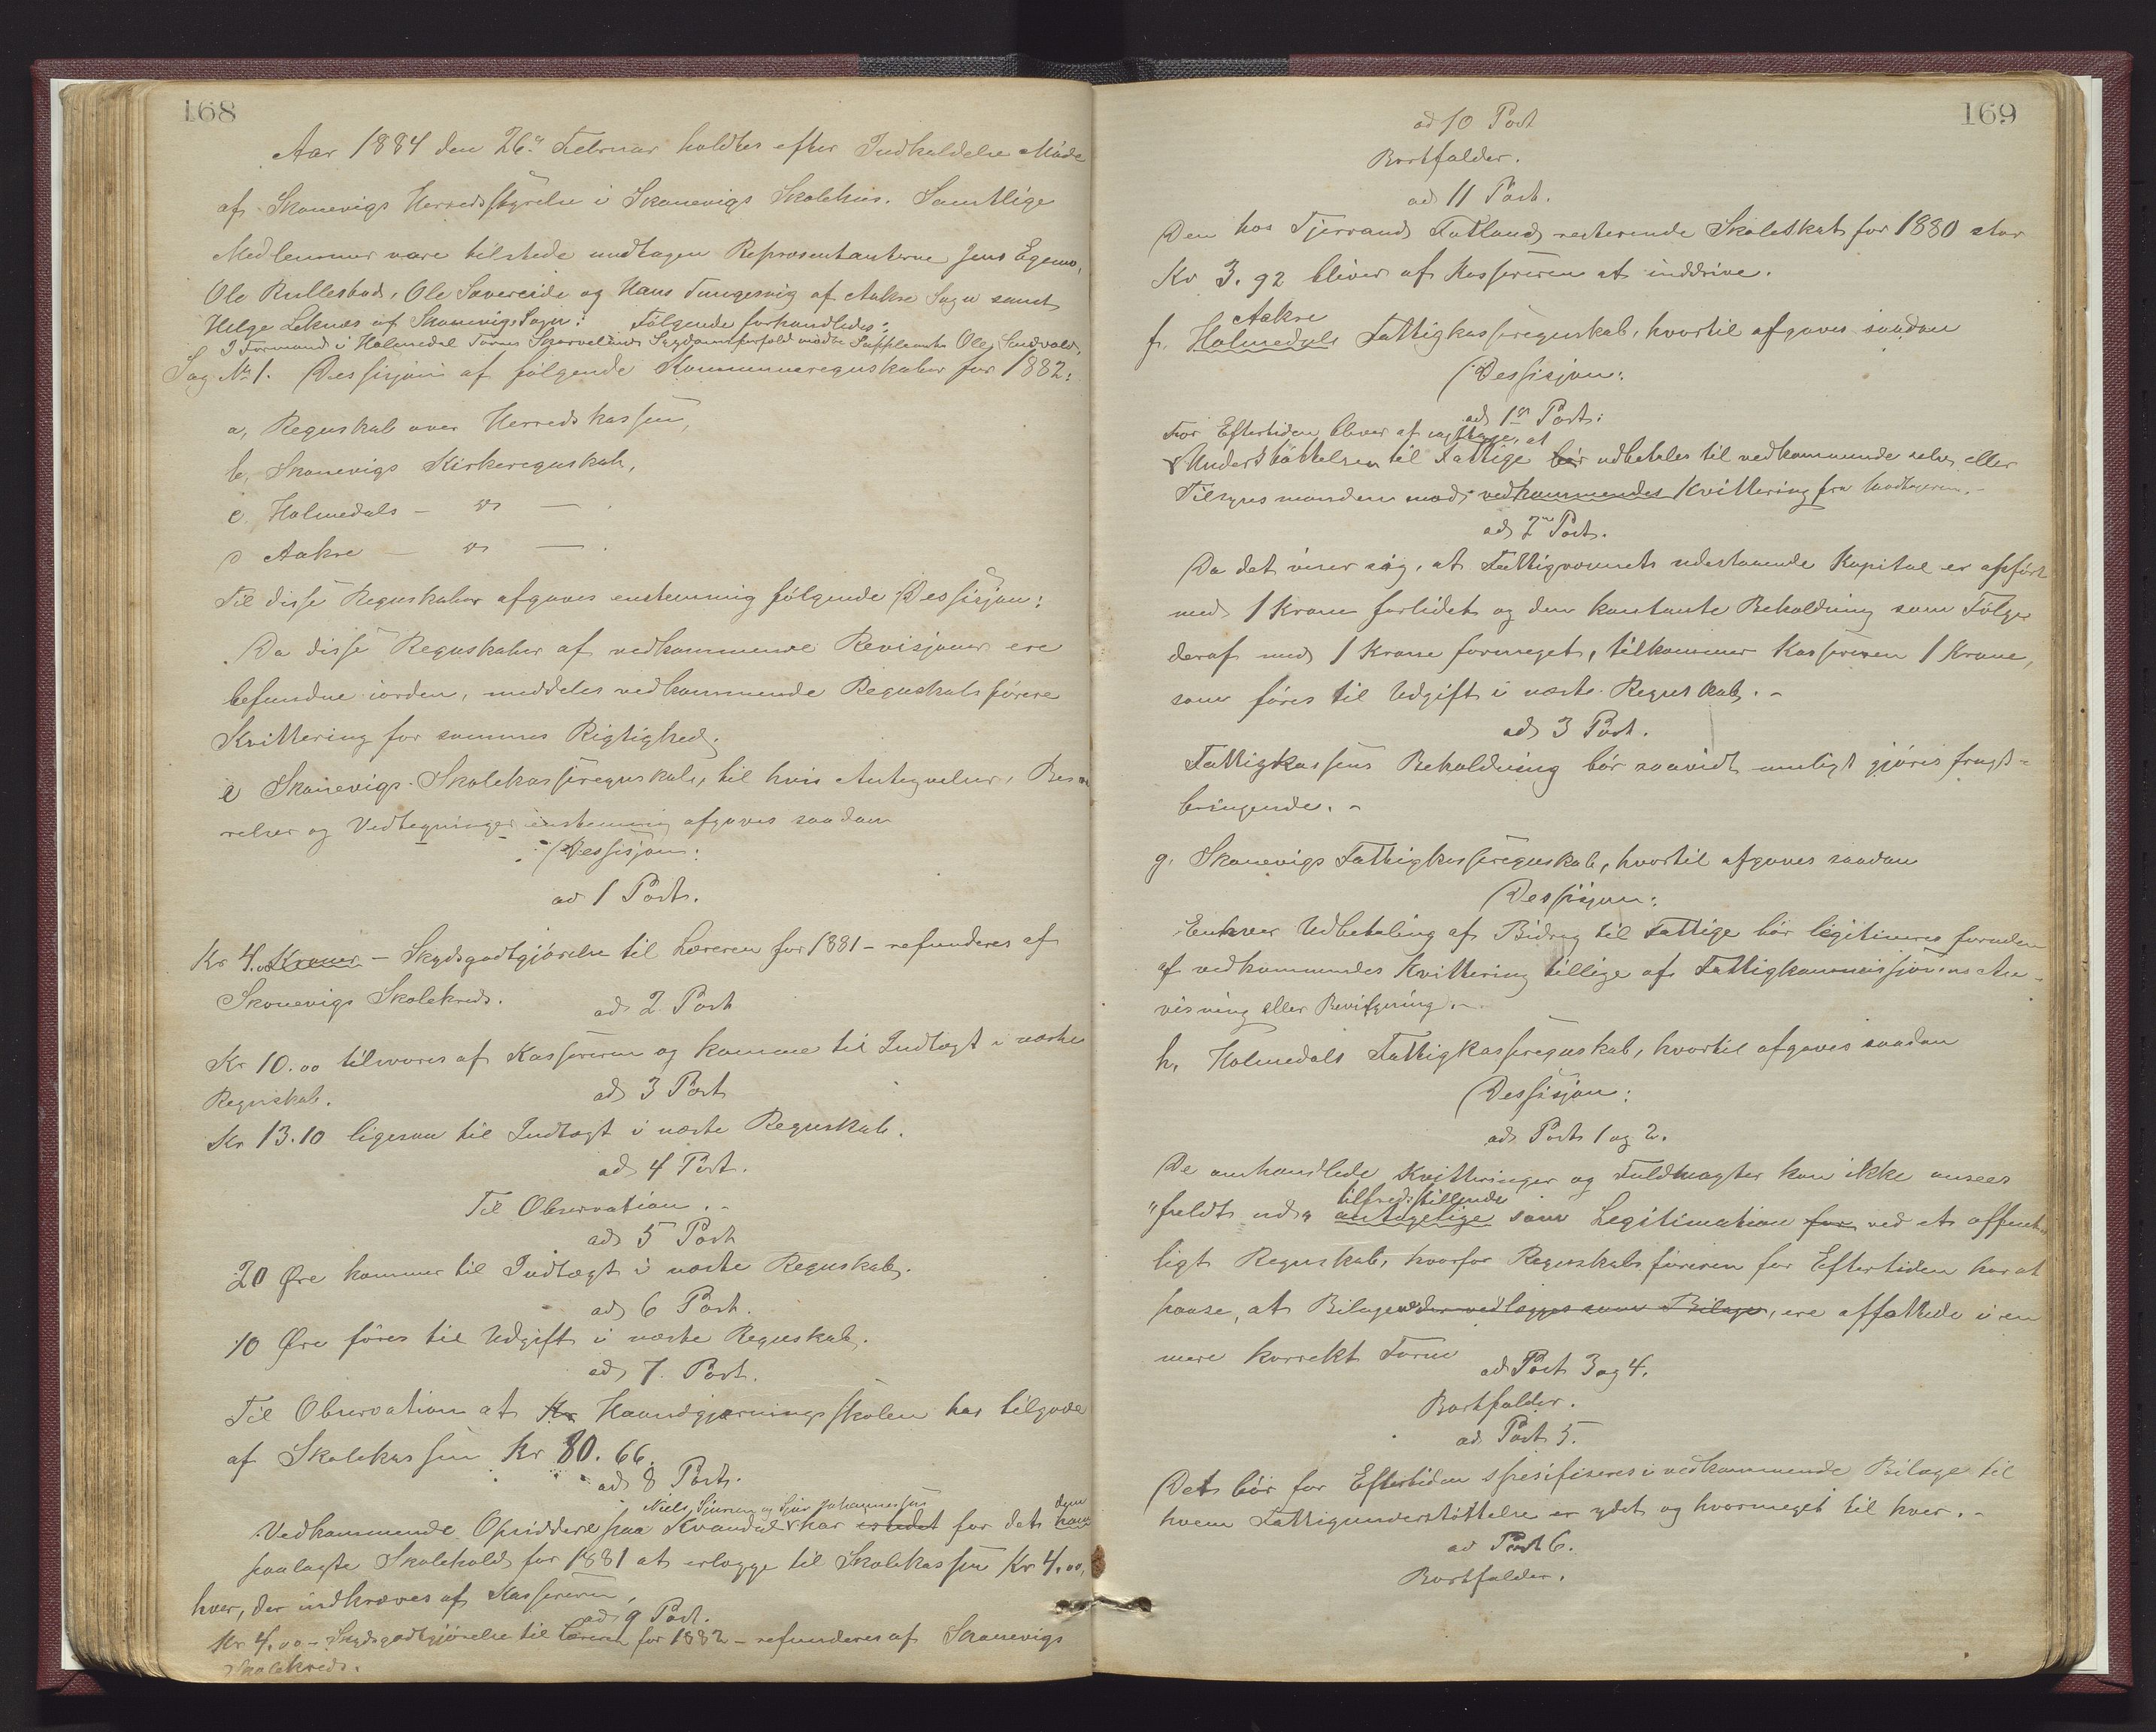 168
Aar 1884 den 26de Februar holdtes efter Indkaldelse Møde
af Skonevigs Herredsstyrelse i Skonevigs Skolehus. Samtlige
Medlemmer vare tilstede undtagen Repræsentanterne Jens Egemo,
Ole Rullestad, Ole Sævereide og Hans Tungesvig af Aakre Sogn samt
Helge Leknes af Skonevigs Sogn: Følgende forhandledes:
I Formand i Holmedal Tørres Skarvelands Sygdomsforfald mødte Supleanten Ole Sandvold.
Sag No 1. Dessisjoni af følgende Kommuneregnskaber for 1882:
a, Regnskab over Herredskassen,
b, Skonevigs Kirkeregnskab,
c. Holmedals — " — .
d Aakre — " — .
Til disse Regnskaber afgaves enstemmig følgende Dessisjon:
Da disse Regnskaber af vedkommende Revisjoner ere
befundne iorden, meddeles vedkommende Regnskabsførere
Kvittering for sammes Rigtighed.
e Skonevigs Skolekasseregnskab, til hvis Antegnelser, Besva
relser og Vedtegninger enstemmig afgaves saadan
Dessisjon:
ad 1 Post.
Kr 4.00 Kroner – Skydsgodtgjørelse til Læreren for 1881 – refunderes af
Skonevigs Skolekreds.
ad 2 Post
Kr 10.00 tilsvares af Kassereren og komme til Indtægt i næste
Regnskab.
ad 3 Post
Kr 13.10 ligesaa til Indtægt i næste Regnskab.
ad 4 Post.
Til Observation. –
ad 5 Post
20 Øre kommer til Indtægt i næste Regnskab.
ad 6 Post.
10 Øre føres til Udgift i næste Regnskab.
ad 7. Post.
Til Observation at Kr Haandgjerningsskolen har tilgode
af Skolekassen Kr 80.66.
ad 8 Post.
Niels Sjursen og Sjur Johannessen
Vedkommende Opsiddere paa Kvandal har istedet for det dem ham
paalagte Skolehold for 1881 at erlægge til Skolekassen Kr 4.00,
hver, der indkræves af Kassereren,
ad 9 Post.
Kr. 4.00 – Skydsgodtgjørelse til Læreren for 1882 – refunderes af Skonevigs
Skolekreds.
169
ad 10 Post
Bortfalder.
ad 11 Post.
Den hos Tjerrand Fatland resterende Skoleskat for 1880 stor
Kr 3.92 bliver af Kassereren at inddrive.
Aakre
f. Holmedals Fattigkasseregnskab, hvortil afgaves saadan
Dessisjon:
ad 1ste Post:
For Eftertiden bliver at iagttage, at
Understøttelsen til Fattige bør udbetales til vedkommende selv, eller
Tilsynsmanden mod vedkommendes Kvittering fra Modtageren. –
ad 2den Post.
Da det viser sig, at Fattigvæsnets udestaaende Kapital er opført
med 1 Krone forlidet og den kontante Beholdning som Følge
deraf med 1 Krone formeget, tilkommer Kassereren 1 Krone,
som føres til Udgift i næste Regnskab. –
ad 3 Post.
Fattigkassens Beholdning bør saavidt muligt gjøres frugt-
bringende. –
g. Skonevigs Fattigkasseregnskab, hvortil afgaves saadan
Dessisjon:
Enhver Udbetaling af Bidrag til Fattige bør legitimeres foruden
af vedkommendes Kvittering tillige af Fattigkommissjonens An-
visning eller Bevilgning. –
h. Holmedals Fattigkasseregnskab, hvortil afgaves saadan
Dessisjon:
ad Post 1 og 2.
De omhandlede Kvitteringer og Fuldmagter kan ikke ansees
tilfredsstillende
"fuldt ud" antagelige som Legitimation for ved et offent-
ligt Regnskab, hvorfor Regnskabsføreren for Eftertiden har at
paase, at Bilagene der vedlægges som Bilage, ere affattede i en
mere korrekt Form
ad Post 3 og 4.
Bortfalder.
ad Post 5.
Det bør for Eftertiden spesifiseres i vedkommende Bilage til
hvem Fattigunderstøttelse er ydet og hvormeget til hver. –
ad Post 6.
Bortfalder.